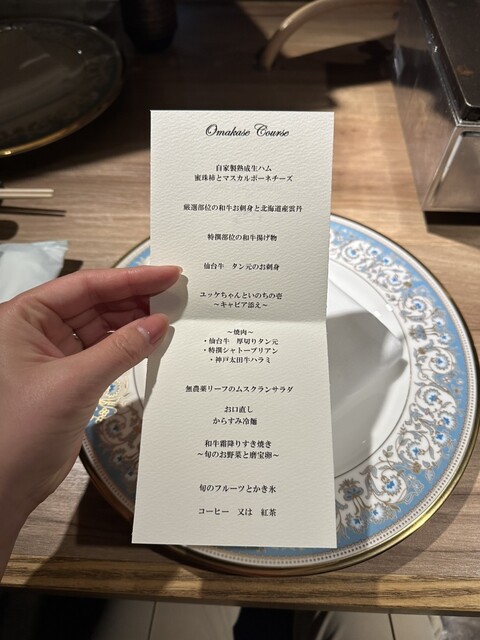 Omakase Course
自家製熟成生ハム
蜜珠柿とマスカルポーネチーズ
厳選部位の和牛お刺身と北海道産雲丹
特撰部位の和牛揚げ物
仙台牛　タン元のお刺身
ユッケちゃんといのちの壱
～キャビア添え～
～焼肉～
・仙台牛　厚切りタン元
・特撰シャトーブリアン
・神戸太田牛ハラミ
無農薬リーフのムスクランサラダ
お口直し
からすみ冷麺
和牛霜降りすき焼き
～旬のお野菜と磨宝卵～
旬のフルーツとかき氷
コーヒー　又は　紅茶